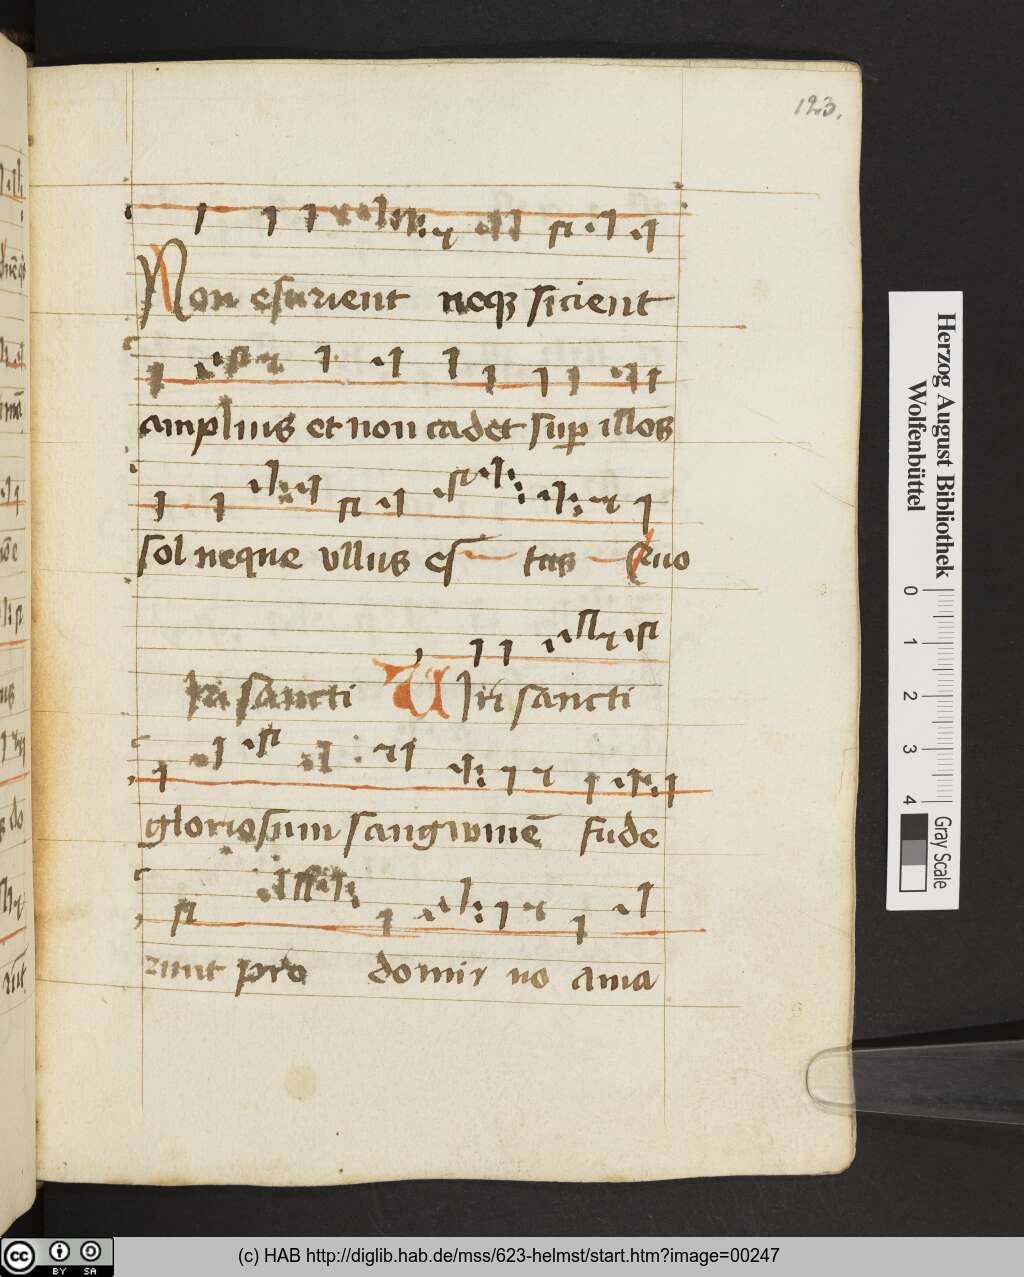 123.
Non esurient neqꝫ sicient
amplius et non cadet suꝑ illos
sol neque vllus es tas Euo
Viri sancti Viri sancti
gloriosum sangwinē fude
runt pro domino ama
Herzog August Bibliothek
Wolfenbüttel
0 1 2 3 4
Gray Scale
cc BY SA
(c) HAB http://diglib.hab.de/mss/623-helmst/start.htm?image=00247